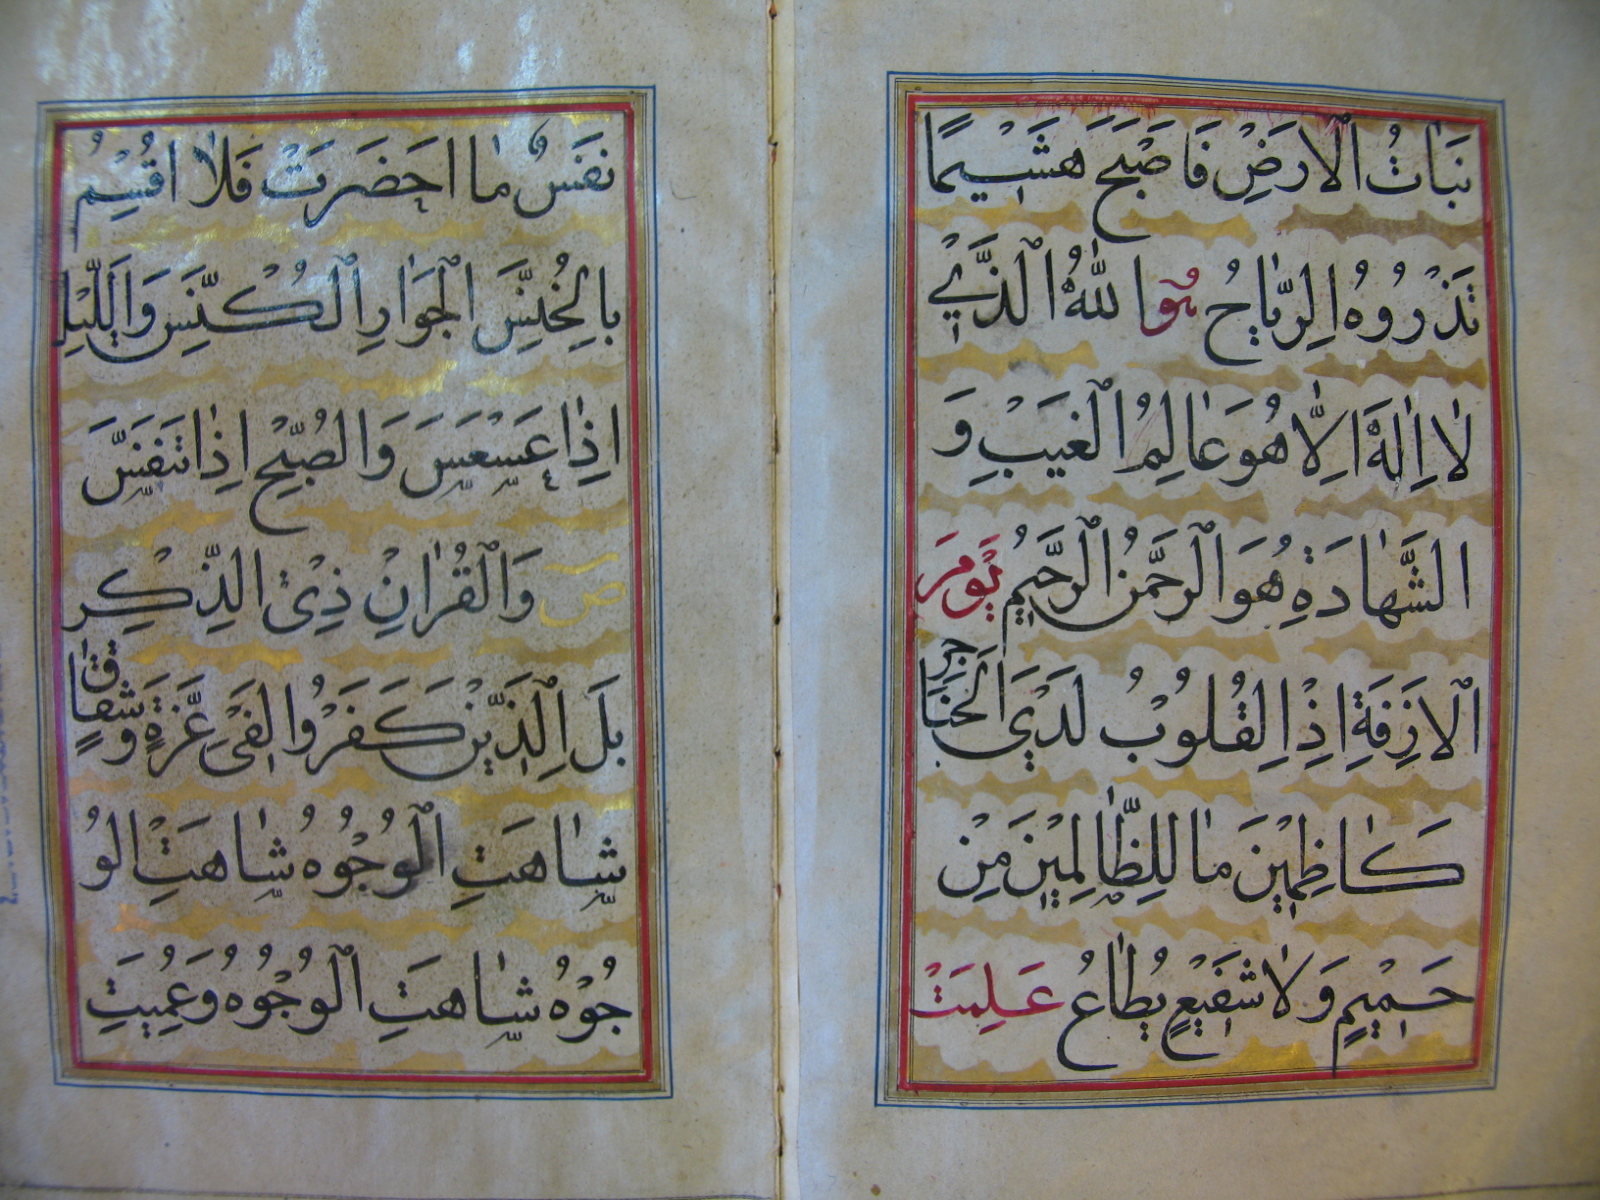 نَبَاتُ الْاَرْضِ فَاَصْبَحَ هَشِيمًا
تَذْرُوهُ الرِّيَاحُ هُوَ اللهُ الَّذِي
لَا اِلٰهَ اِلَّا هُوَ عَالِمُ الْغَيْبِ وَ
الشَّهَادَةِ هُوَ الرَّحْمٰنُ الرَّحِيمُ يَوْمَ
الْاٰزِفَةِ اِذِ الْقُلُوبُ لَدَى الْحَنَاجِرِ
كَاظِمِينَ مَا لِلظَّالِمِينَ مِنْ
حَمِيمٍ وَلَا شَفِيعٍ يُطَاعُ عَلِمَتْ
نَفْسٌ مَا اَحْضَرَتْ فَلَا اُقْسِمُ
بِالْخُنَّسِ الْجَوَارِ الْكُنَّسِ وَاللَّيْلِ
اِذَا عَسْعَسَ وَالصُّبْحِ اِذَا تَنَفَّسَ
صٓ وَالْقُرْاٰنِ ذِي الذِّكْرِ
بَلِ الَّذِينَ كَفَرُوا فِي عِزَّةٍ وَشِقَاقٍ
شَاهَتِ الْوُجُوهُ شَاهَتِ الْوُ
جُوهُ شَاهَتِ الْوُجُوهُ وَعَمِيَتِ